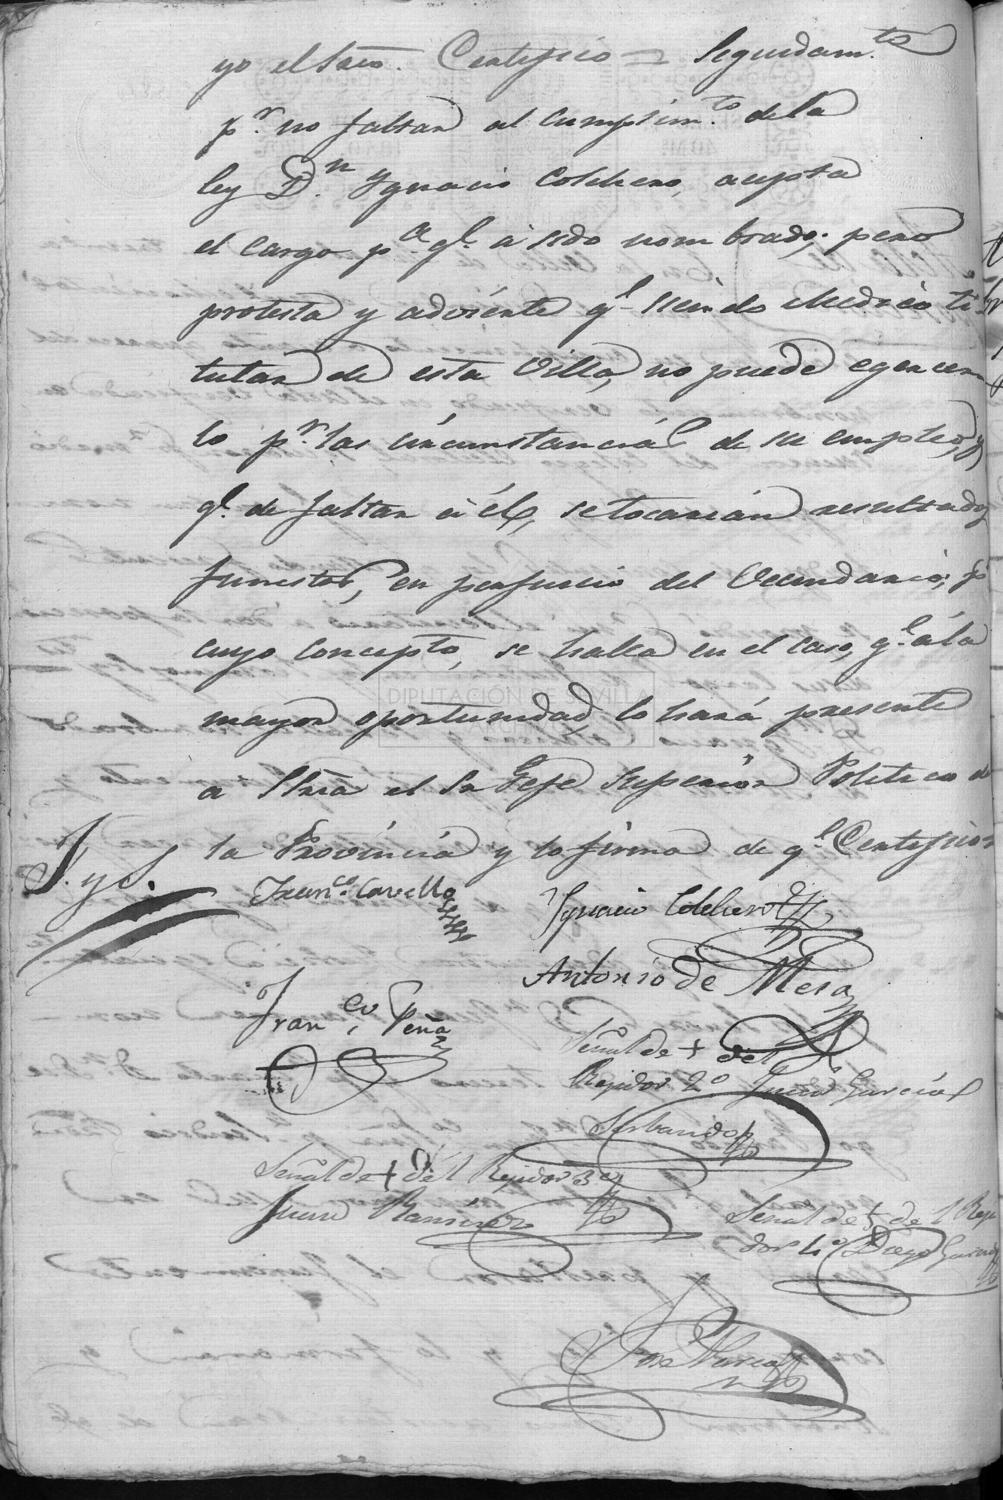 yo el Srio. Certifico = Seguidam.te
p.r no faltar al cumplim.to de la
ley D.n Ygnacio Colchero, acepta
el cargo p.a q.e à sido nombrado; pero
protesta y adviérte q.e siendo Medico ti
tular de esta Villa, no puede egercer
lo p.r las circunstancias de su empleo, y
q.e de faltar à él, se tocarán resultados
funestos, en perjuicio del Vecindario; p.r
cuyo concepto, se halla en el caso, q.e á la
mayor oportunidad, lo hará presente
a Srîa el Sr Gefe Superior Politico de
la Província y lo firma de q.e Certifico=
Fran.co Carvello
Ygnacio Colchero
Antonio de Mesa
Fran.co Peña
Señal de + del
Regidor 2.o Juan García
Serbando
Señal de + del Regidor 3.o
Juan Ramirez
Señal de + del Regi
dor 4.o Diego Garcia
Jose Garcia
DIPUTACIÓN DE SEVILLA
ARCHIVO